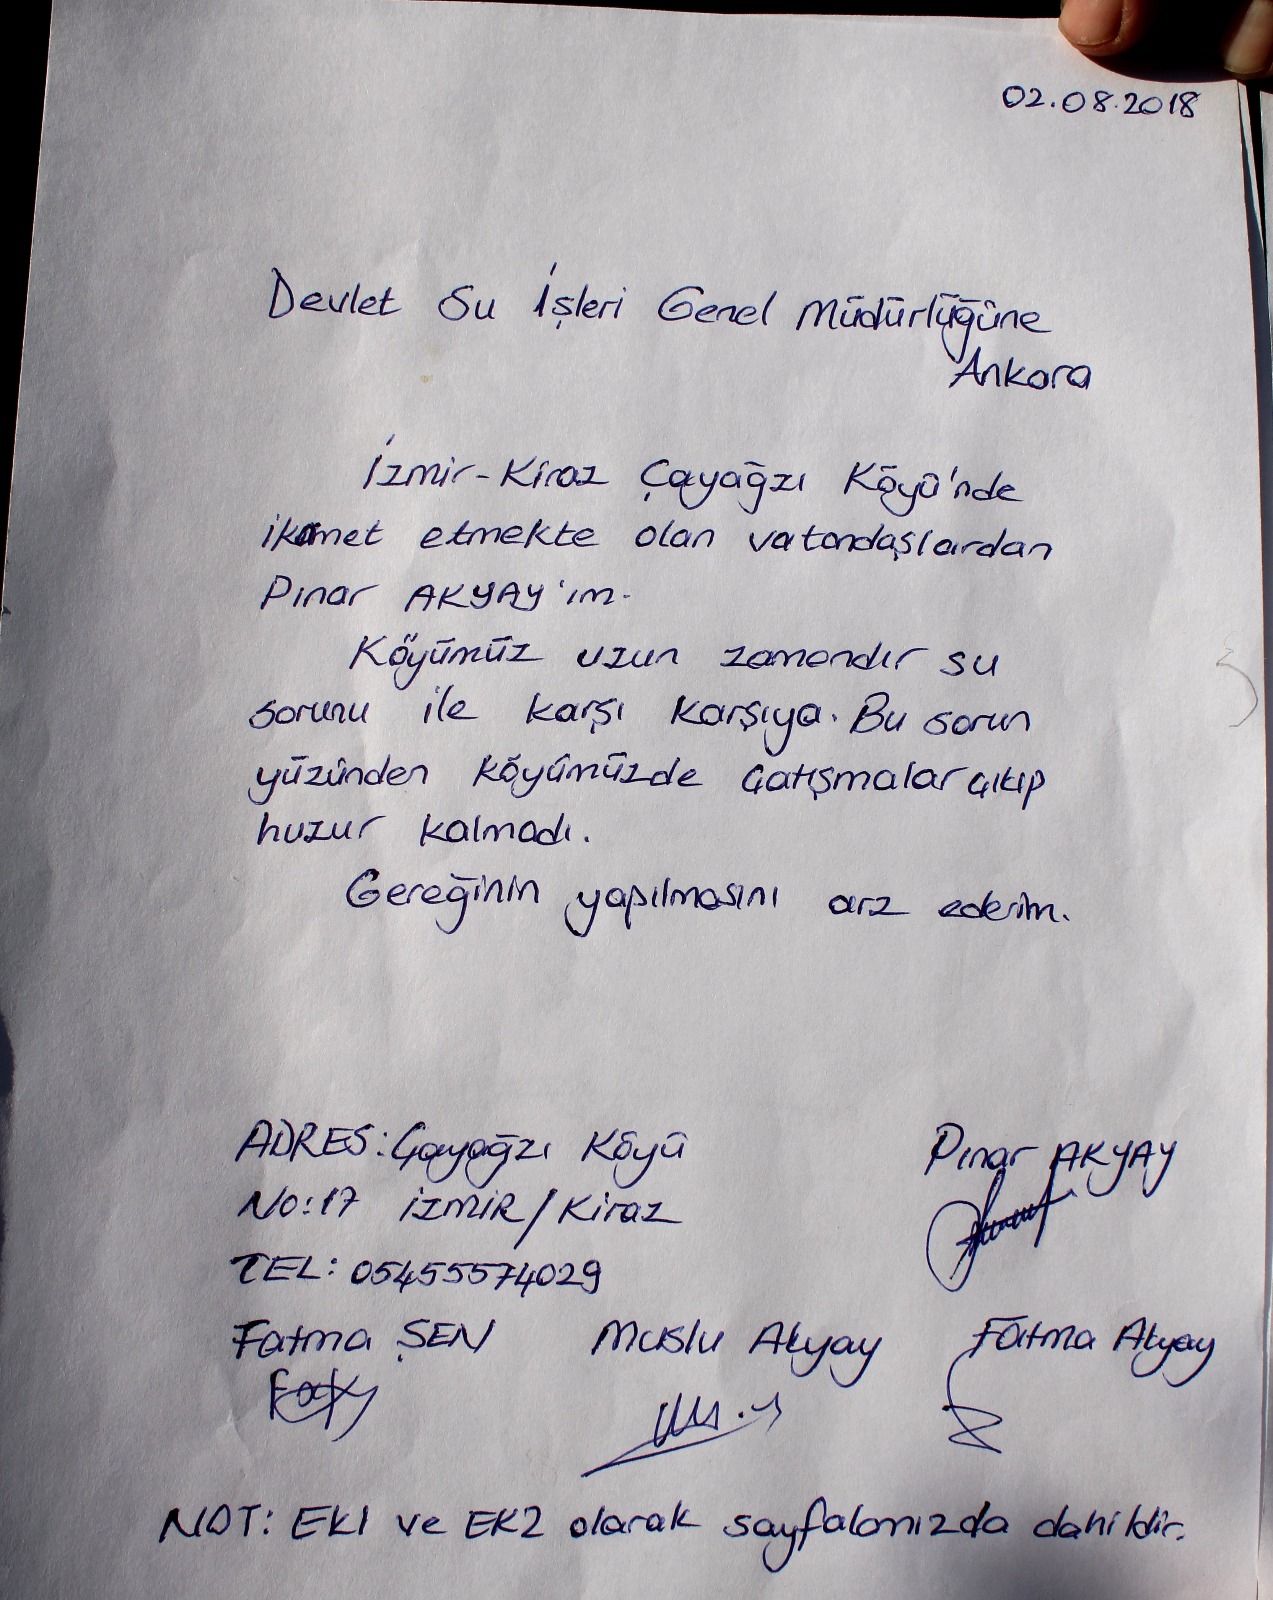 02.08.2018
Devlet Su İşleri Genel Müdürlüğüne
Ankara
İzmir-Kiraz Çayağzı Köyü'nde
ikamet etmekte olan vatandaşlardan
Pınar AKYAY'ım.
Köyümüz uzun zamandır su
sorunu ile karşı karşıya. Bu sorun
yüzünden köyümüzde çatışmalar çıkıp
huzur kalmadı.
Gereğinin yapılmasını arz ederim.
ADRES: Çayağzı Köyü
Pınar AKYAY
No:17 İZMİR/Kiraz
TEL: 05455574029
Fatma ŞEN Muslu Akyay Fatma Akyay
NOT: EK1 ve EK2 olarak sayfalarımızda dahildir.